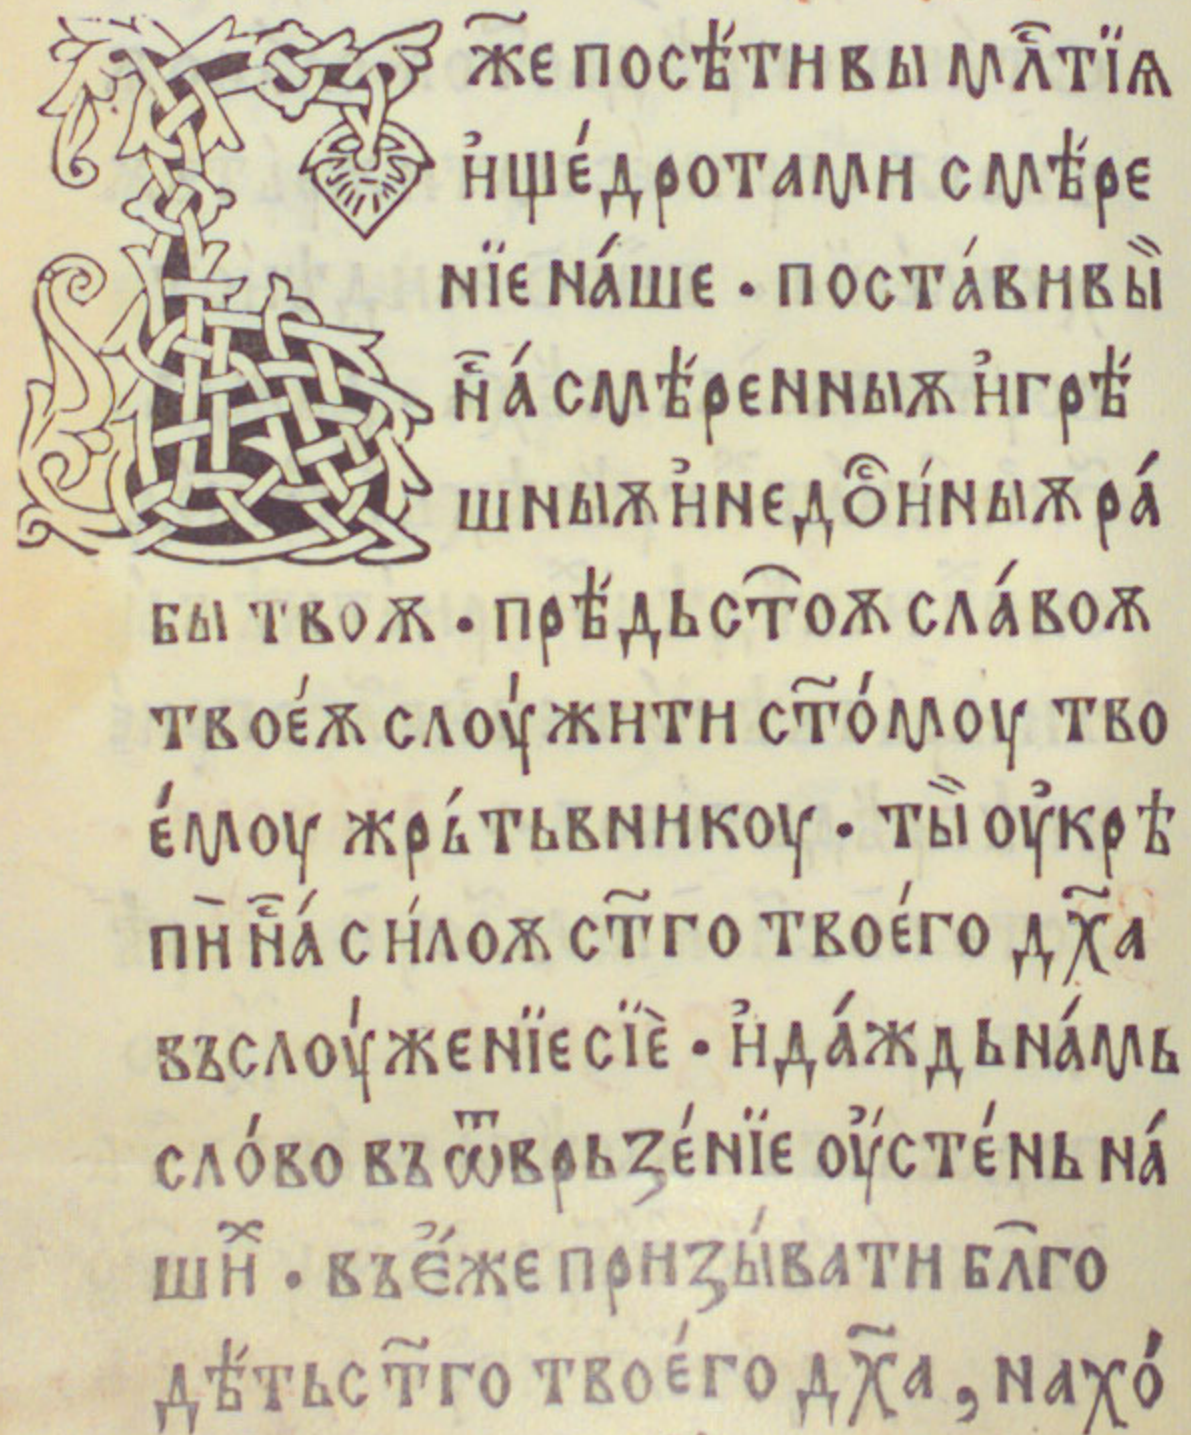 Г҃же посѣ́ти въı мл҇тїѧ
и҆ще́дротами смѣ́ре
нїе на́ше · поста́вивъı̏
н҇а́ смѣ́реннъıѫ и҆грѣ́
шнъıѫ и҆недо҇и́нъıѫ ра́
бъı твоѫ · прѣ́дьст҃оѫ сла́воѫ
твое́ѫ слоу́жити ст҃о́моу тво
е́моу жрь́тьвникоу · тъı̏ оу҆крѣ
пѝ н҇а́ си́лоѫ ст҃го твое́го дх҃а
въслоу́женїе сїѐ · и҆да́ждь на́мь
сло́во въ ѿврьзе́нїе оу҆́сте́нь на́
шиⷯ · въе҆́же призъı́вати бл҃го
дѣ́тьст҃го твое́го дх҃а , нахо́